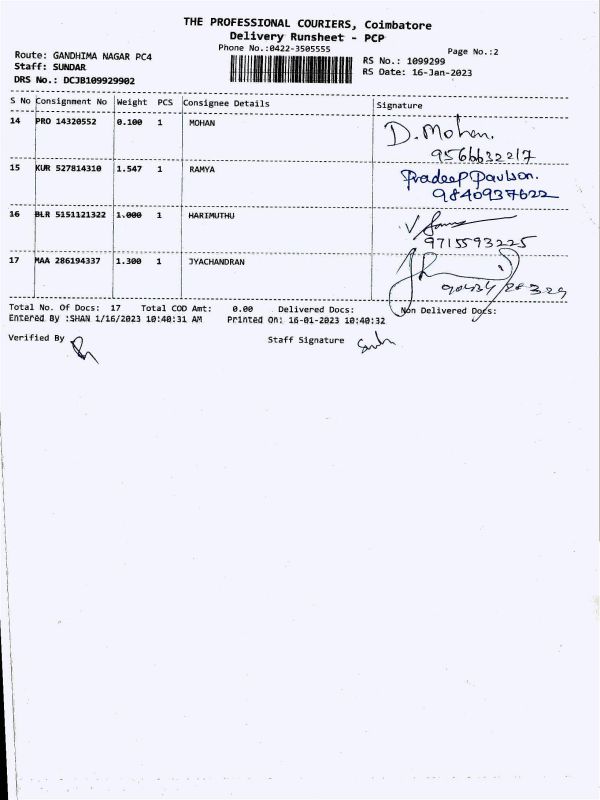 THE PROFESSIONAL COURIERS, Coimbatore
Delivery Runsheet - PCP
Phone No.:0422-3505555
Page No.:2
Route: GANDHIMA NAGAR PC4
RS No.: 1099299
Staff: SUNDAR
RS Date: 16-Jan-2023
DRS No.: DCJB109929902
S No Consignment No Weight PCS Consignee Details Signature
14 PRO 14320552 0.100 1 MOHAN D. Mohan.
9566632217
15 KUR 527814310 1.547 1 RAMYA Pradeep Paulson.
9840937622
16 BLR 5151121322 1.000 1 HARIMUTHU
9715593225
17 MAA 286194337 1.300 1 JYACHANDRAN
Total No. Of Docs: 17 Total COD Amt: 0.00 Delivered Docs: Non Delivered Docs:
Entered By :SHAN 1/16/2023 10:40:31 AM Printed On: 16-01-2023 10:40:32
Verified By Staff Signature